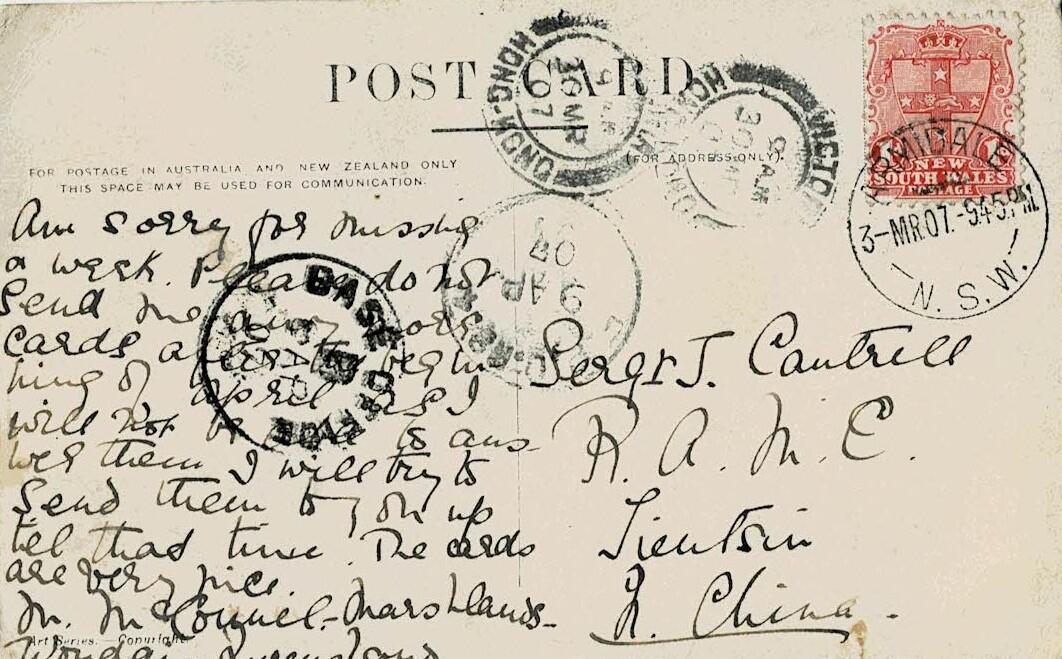 POST CARD
FOR POSTAGE IN AUSTRALIA AND NEW ZEALAND ONLY
THIS SPACE MAY BE USED FOR COMMUNICATION.
(FOR ADDRESS ONLY).
Am sorry for missing
a week. Please do not
send me any more
cards after the begin
ning of April as I
will not be able to ans-
wer them I will try to
send them to you up
tel that time. The cards
are very nice.
M. McConnel. Marshlands-
Wondai Queensland
Art Series. — Copyright.
Sergt J. Cantrell
R. A. M. C.
Tientsin
N. China.
NEW
SOUTH WALES
POSTAGE
ARMIDALE
3-MR.07.-9.45.PM
N. S. W.
HONG-KONG
30 MR
07
VICTORIA
HONG-KONG
9 AM
30 MR
BASE OFFICE
9 AP
07